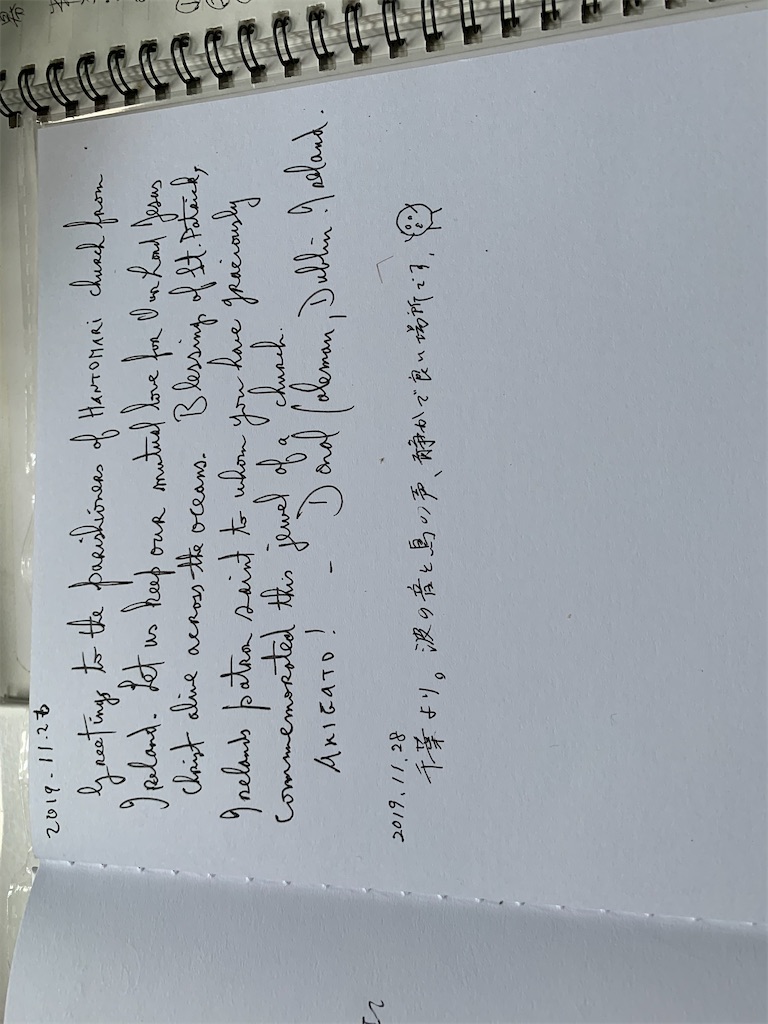 2019.11.26
Greetings to the parishioners of HANTOMARI church from
Ireland. Let us keep our mutual love for Our Lord Jesus
Christ alive across the oceans. Blessings of St. Patrick,
Irelands patron saint to whom you have graciously
commemorated this jewel of a church.
ARIGATO! - Donal Coleman, Dublin. Ireland.
2019.11.28
千葉より。波の音と鳥の声、静かで良い場所です。